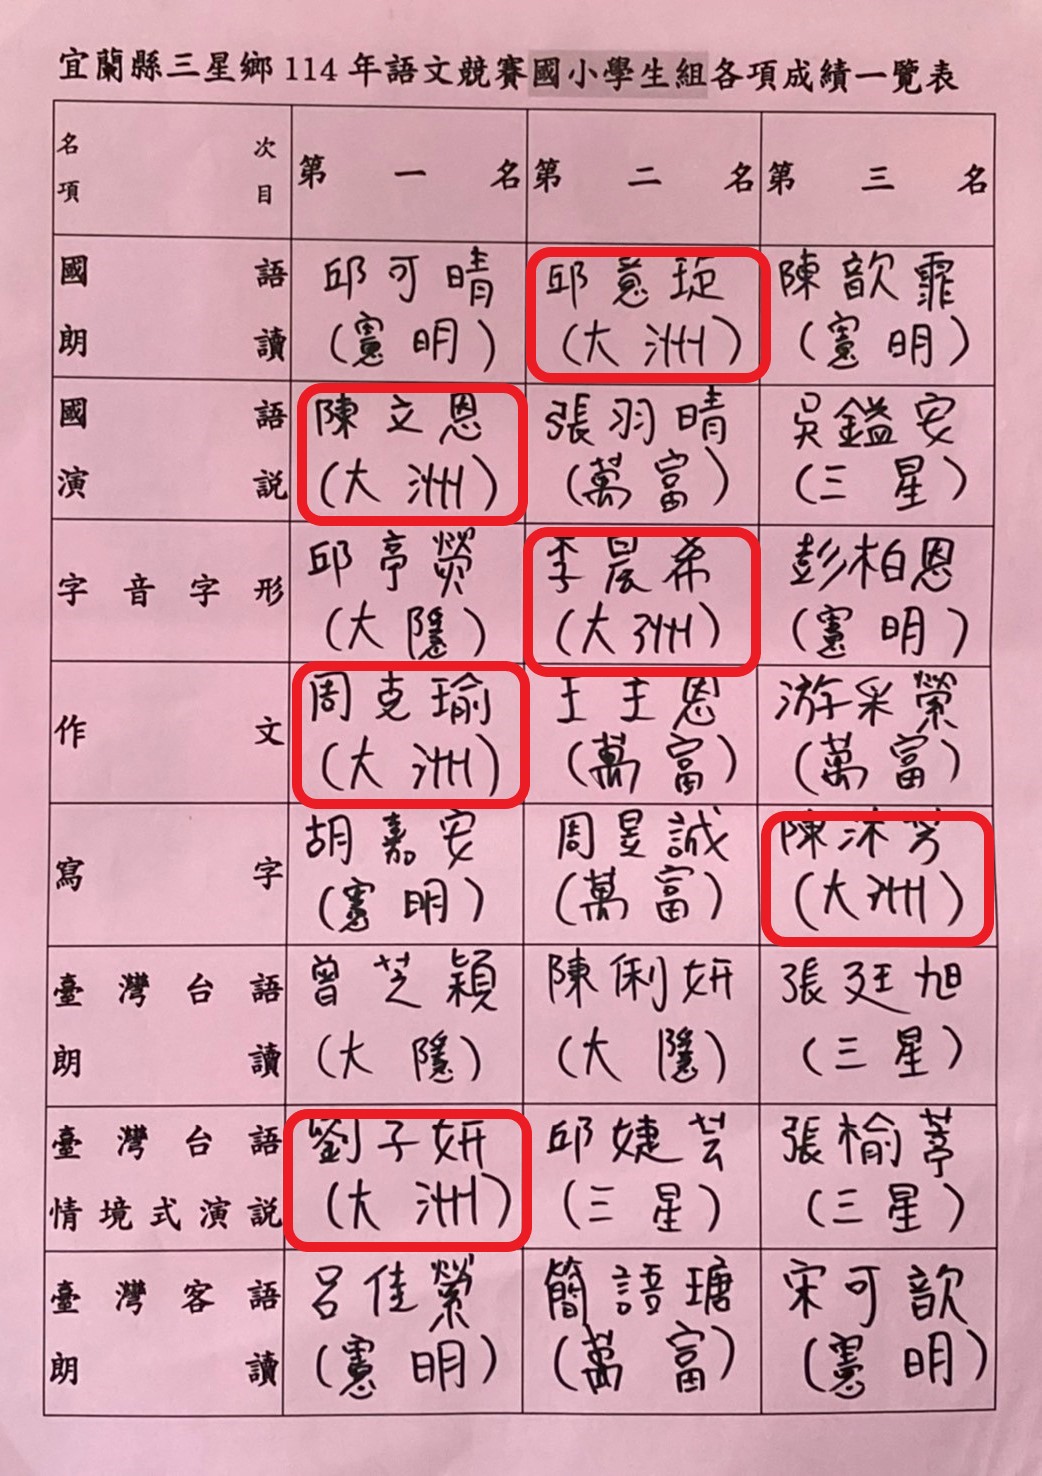 宜蘭縣三星鄉114年語文競賽國小學生組各項成績一覽表
名 次
項 目
第一名 第二名 第三名
國語 邱可晴 邱薏琁 陳歆霏
朗讀 (憲明) (大洲) (憲明)
國語 陳文恩 張羽晴 吳鎰安
演說 (大洲) (萬富) (三星)
字音字形 邱亭熒 李晨希 彭柏恩
(大隱) (大洲) (憲明)
作文 周克瑜 王主恩 游采縈
(大洲) (萬富) (萬富)
寫字 胡嘉安 周昱誠 陳沐
(憲明) (萬富) (大洲)
臺灣台語 曾芝穎 陳俐妍 張廷旭
朗讀 (大隱) (大隱) (三星)
臺灣台語 劉子妍 邱婕芸 張榆葶
情境式演說 (大洲) (三星) (三星)
臺灣客語 呂佳縈 簡語瑭 宋可歆
朗讀 (憲明) (萬富) (憲明)